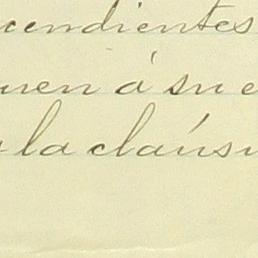 cendientes
uen á su e
la claúsu